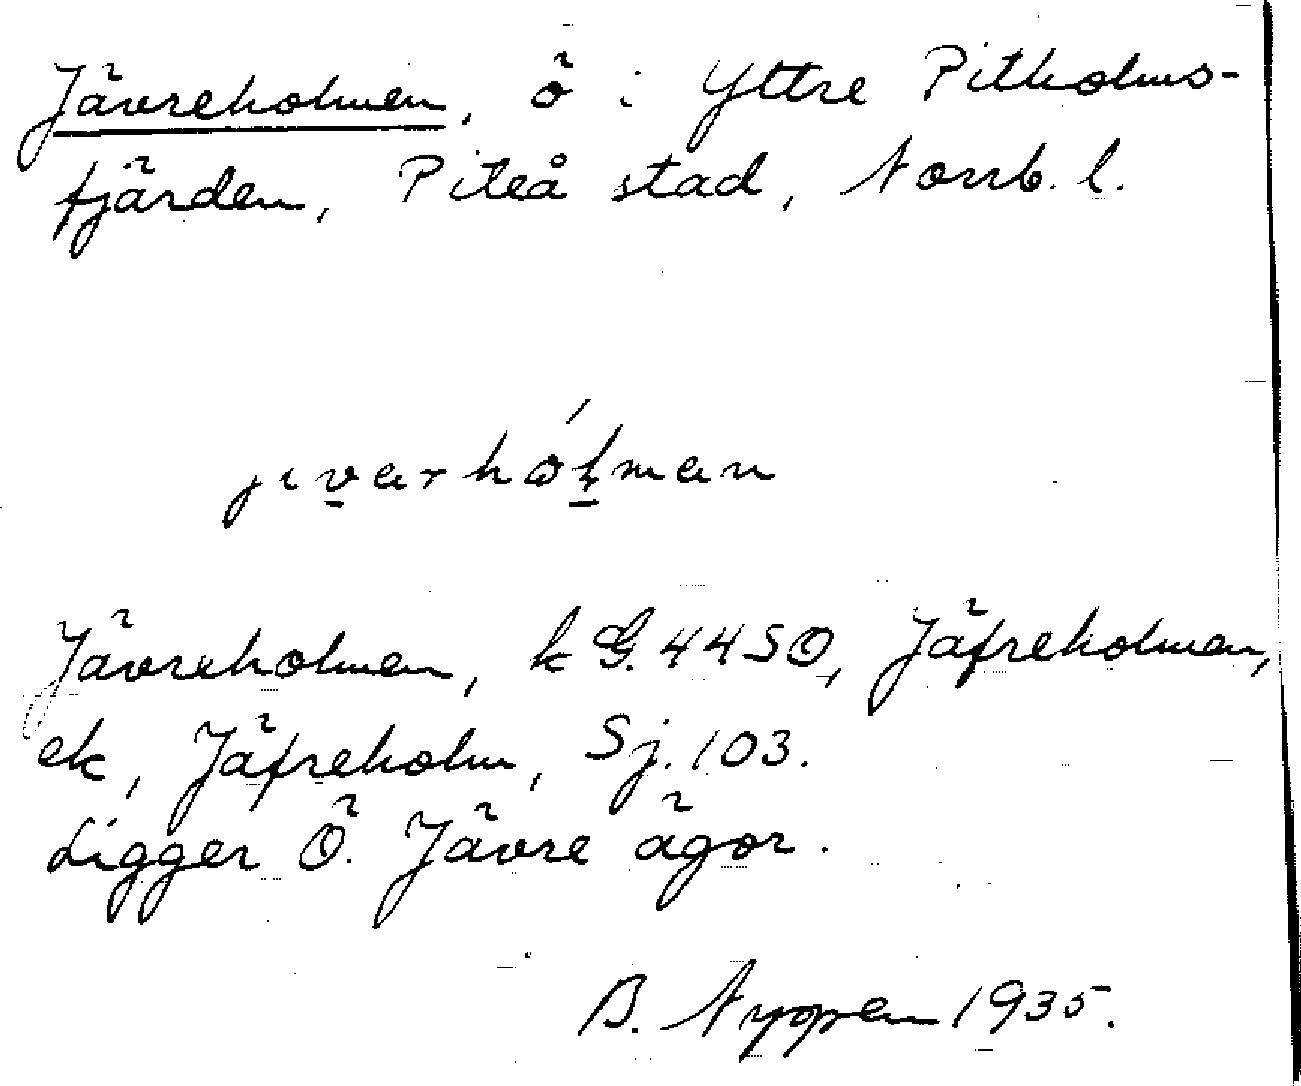 Jävreholmen, ö i Yttre Pitholms-
fjärden, Piteå stad, Norrb. l.
Jävreholmen, k G. 4450, Jäfreholmen,
ek, Jäfreholm, Sj. 103.
Ligger Ö. Jävre ägor.
B. 1935.